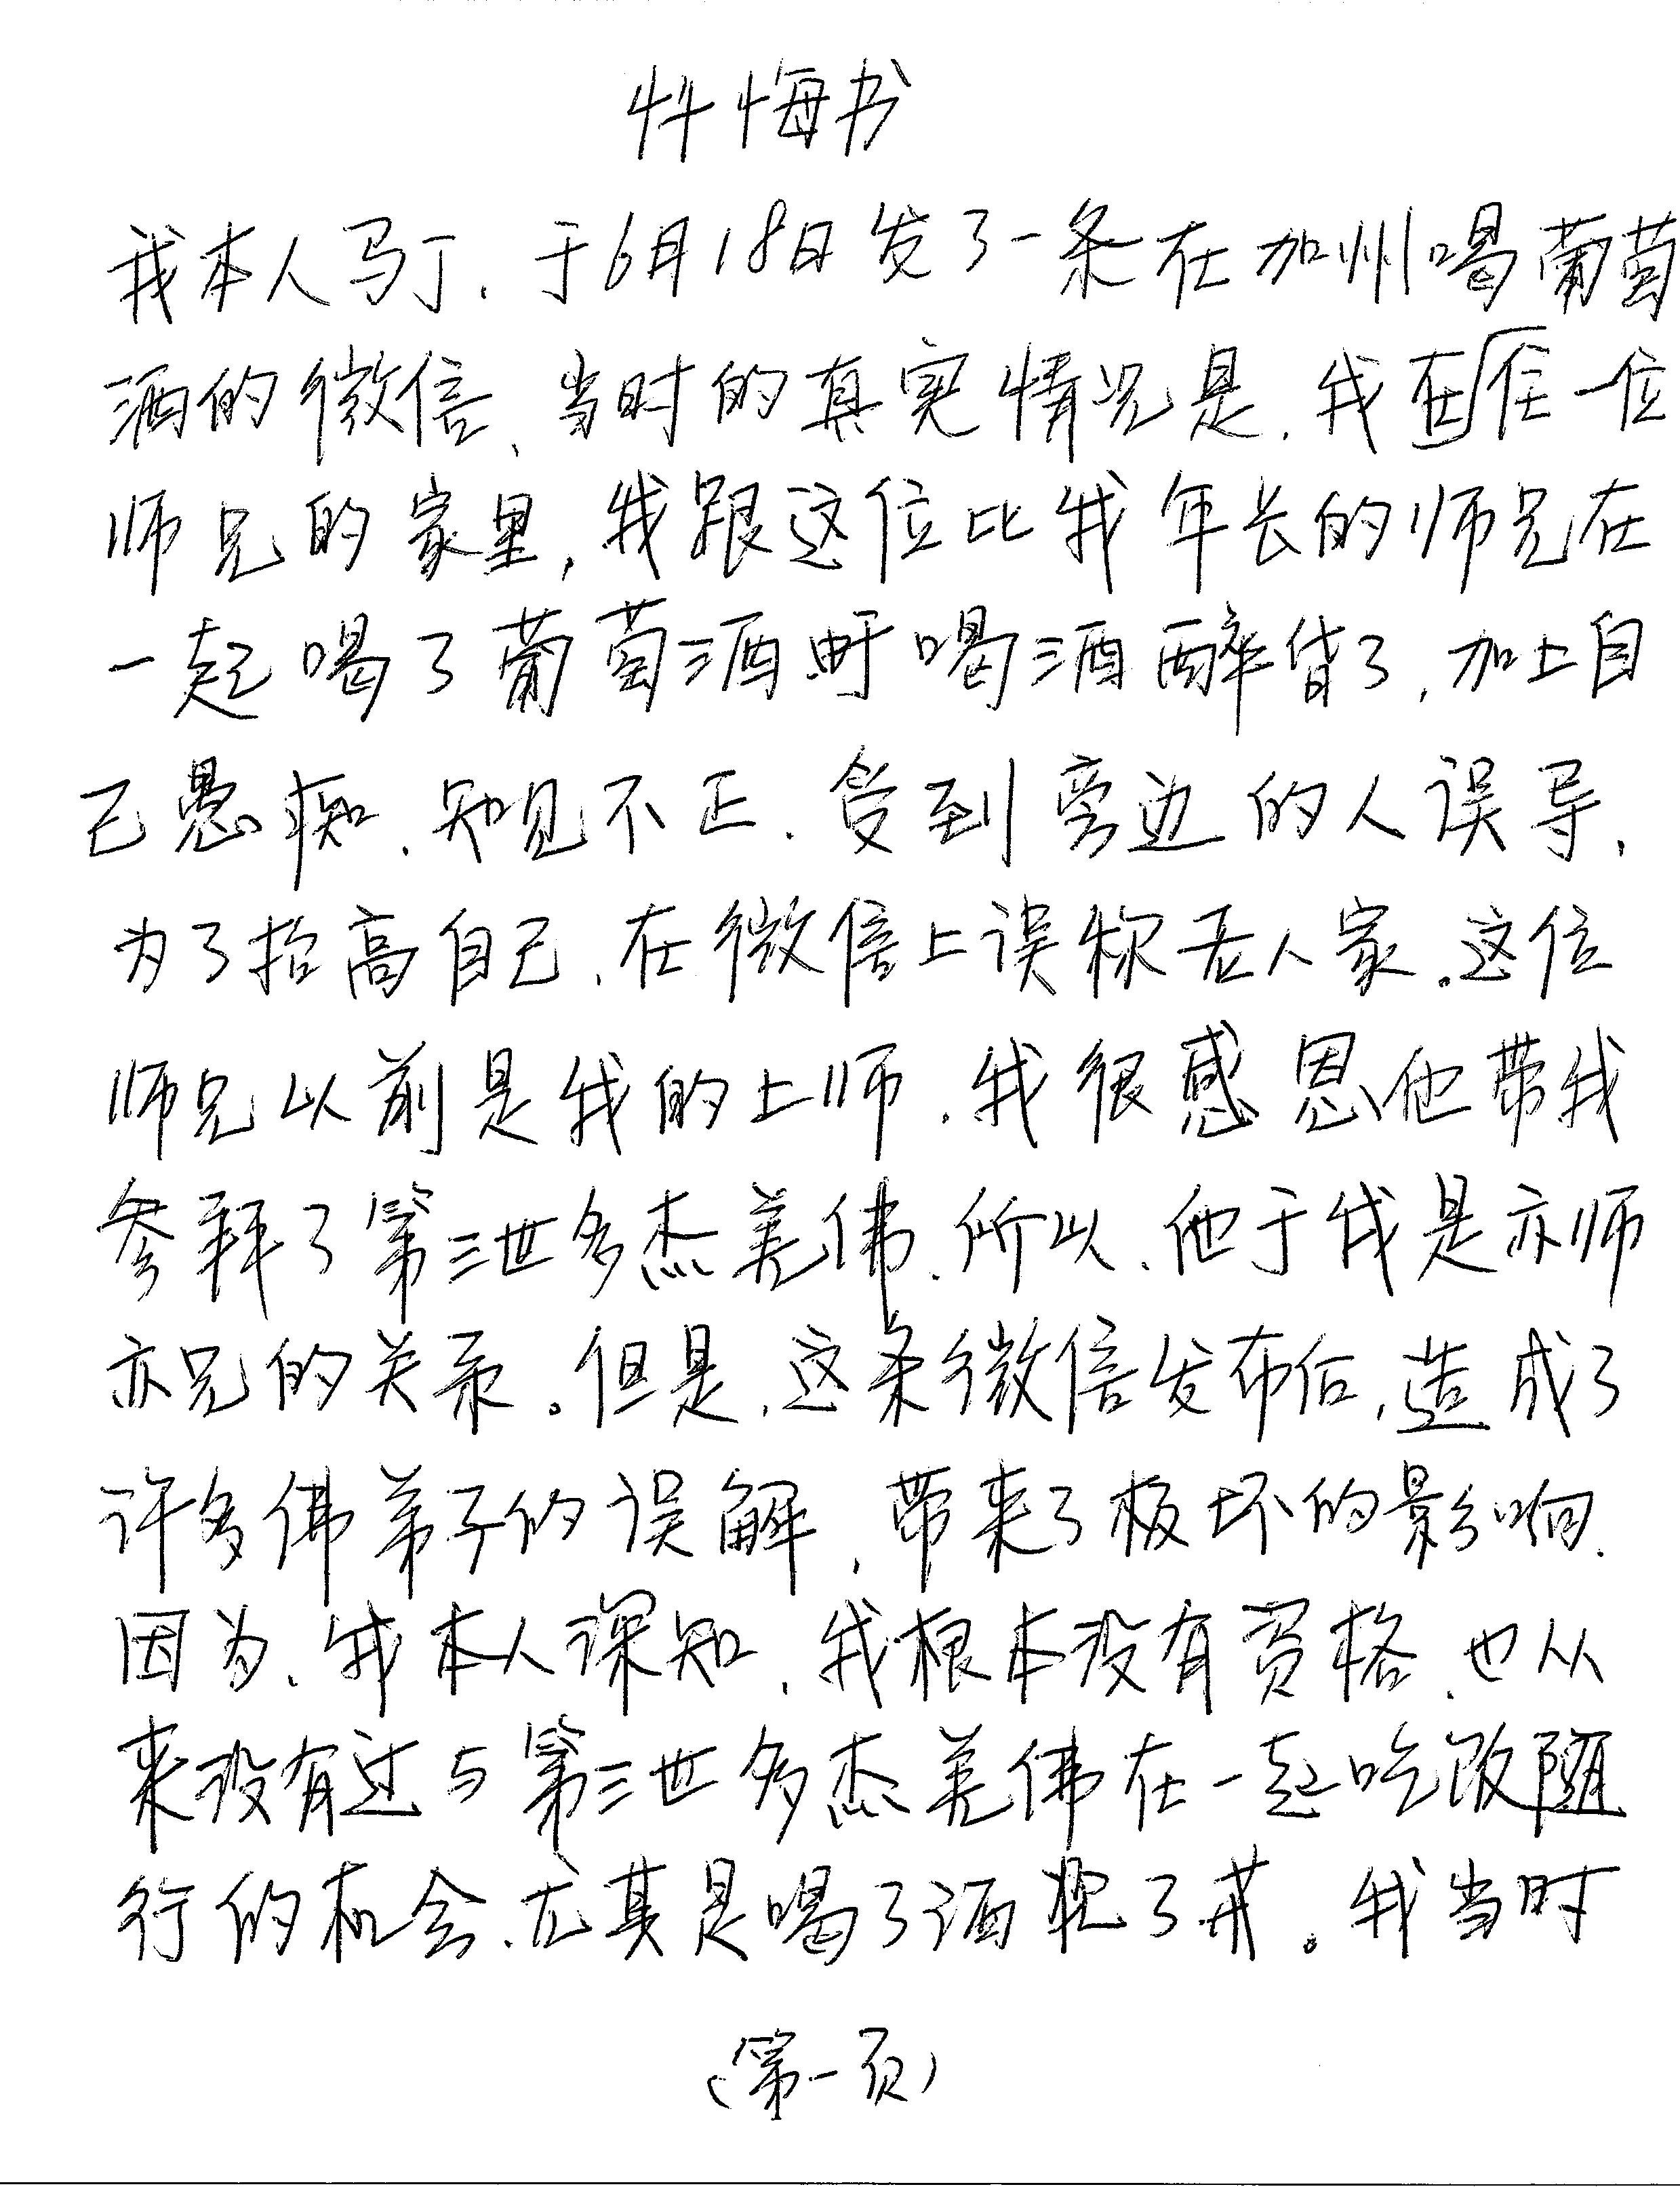 忏悔书
我本人马丁、于6月18日发了一条在加州喝葡萄
酒的微信、当时的真实情况是、我在住一位
师兄的家里,我跟这位比我年长的师兄在
一起喝了葡萄酒 喝酒醉 了,加上自
己愚痴、知见不正、受到旁边的人误导、
为了抬高自己、在微信上误称 人家。这位
师兄以前是我的上师、我很感恩他带我
参拜了第三世多杰羌佛、所以、他于我是亦师
亦兄的关系。但是、这条微信发布后,造成了
许多佛弟子的误解,带来了极坏的影响、
因为、我本人深知、我根本没有资格、也从
来没有过与第三世多杰羌佛在一起吃饭随
行的机会、尤其是喝了酒犯了戒。我当时
(第一页)